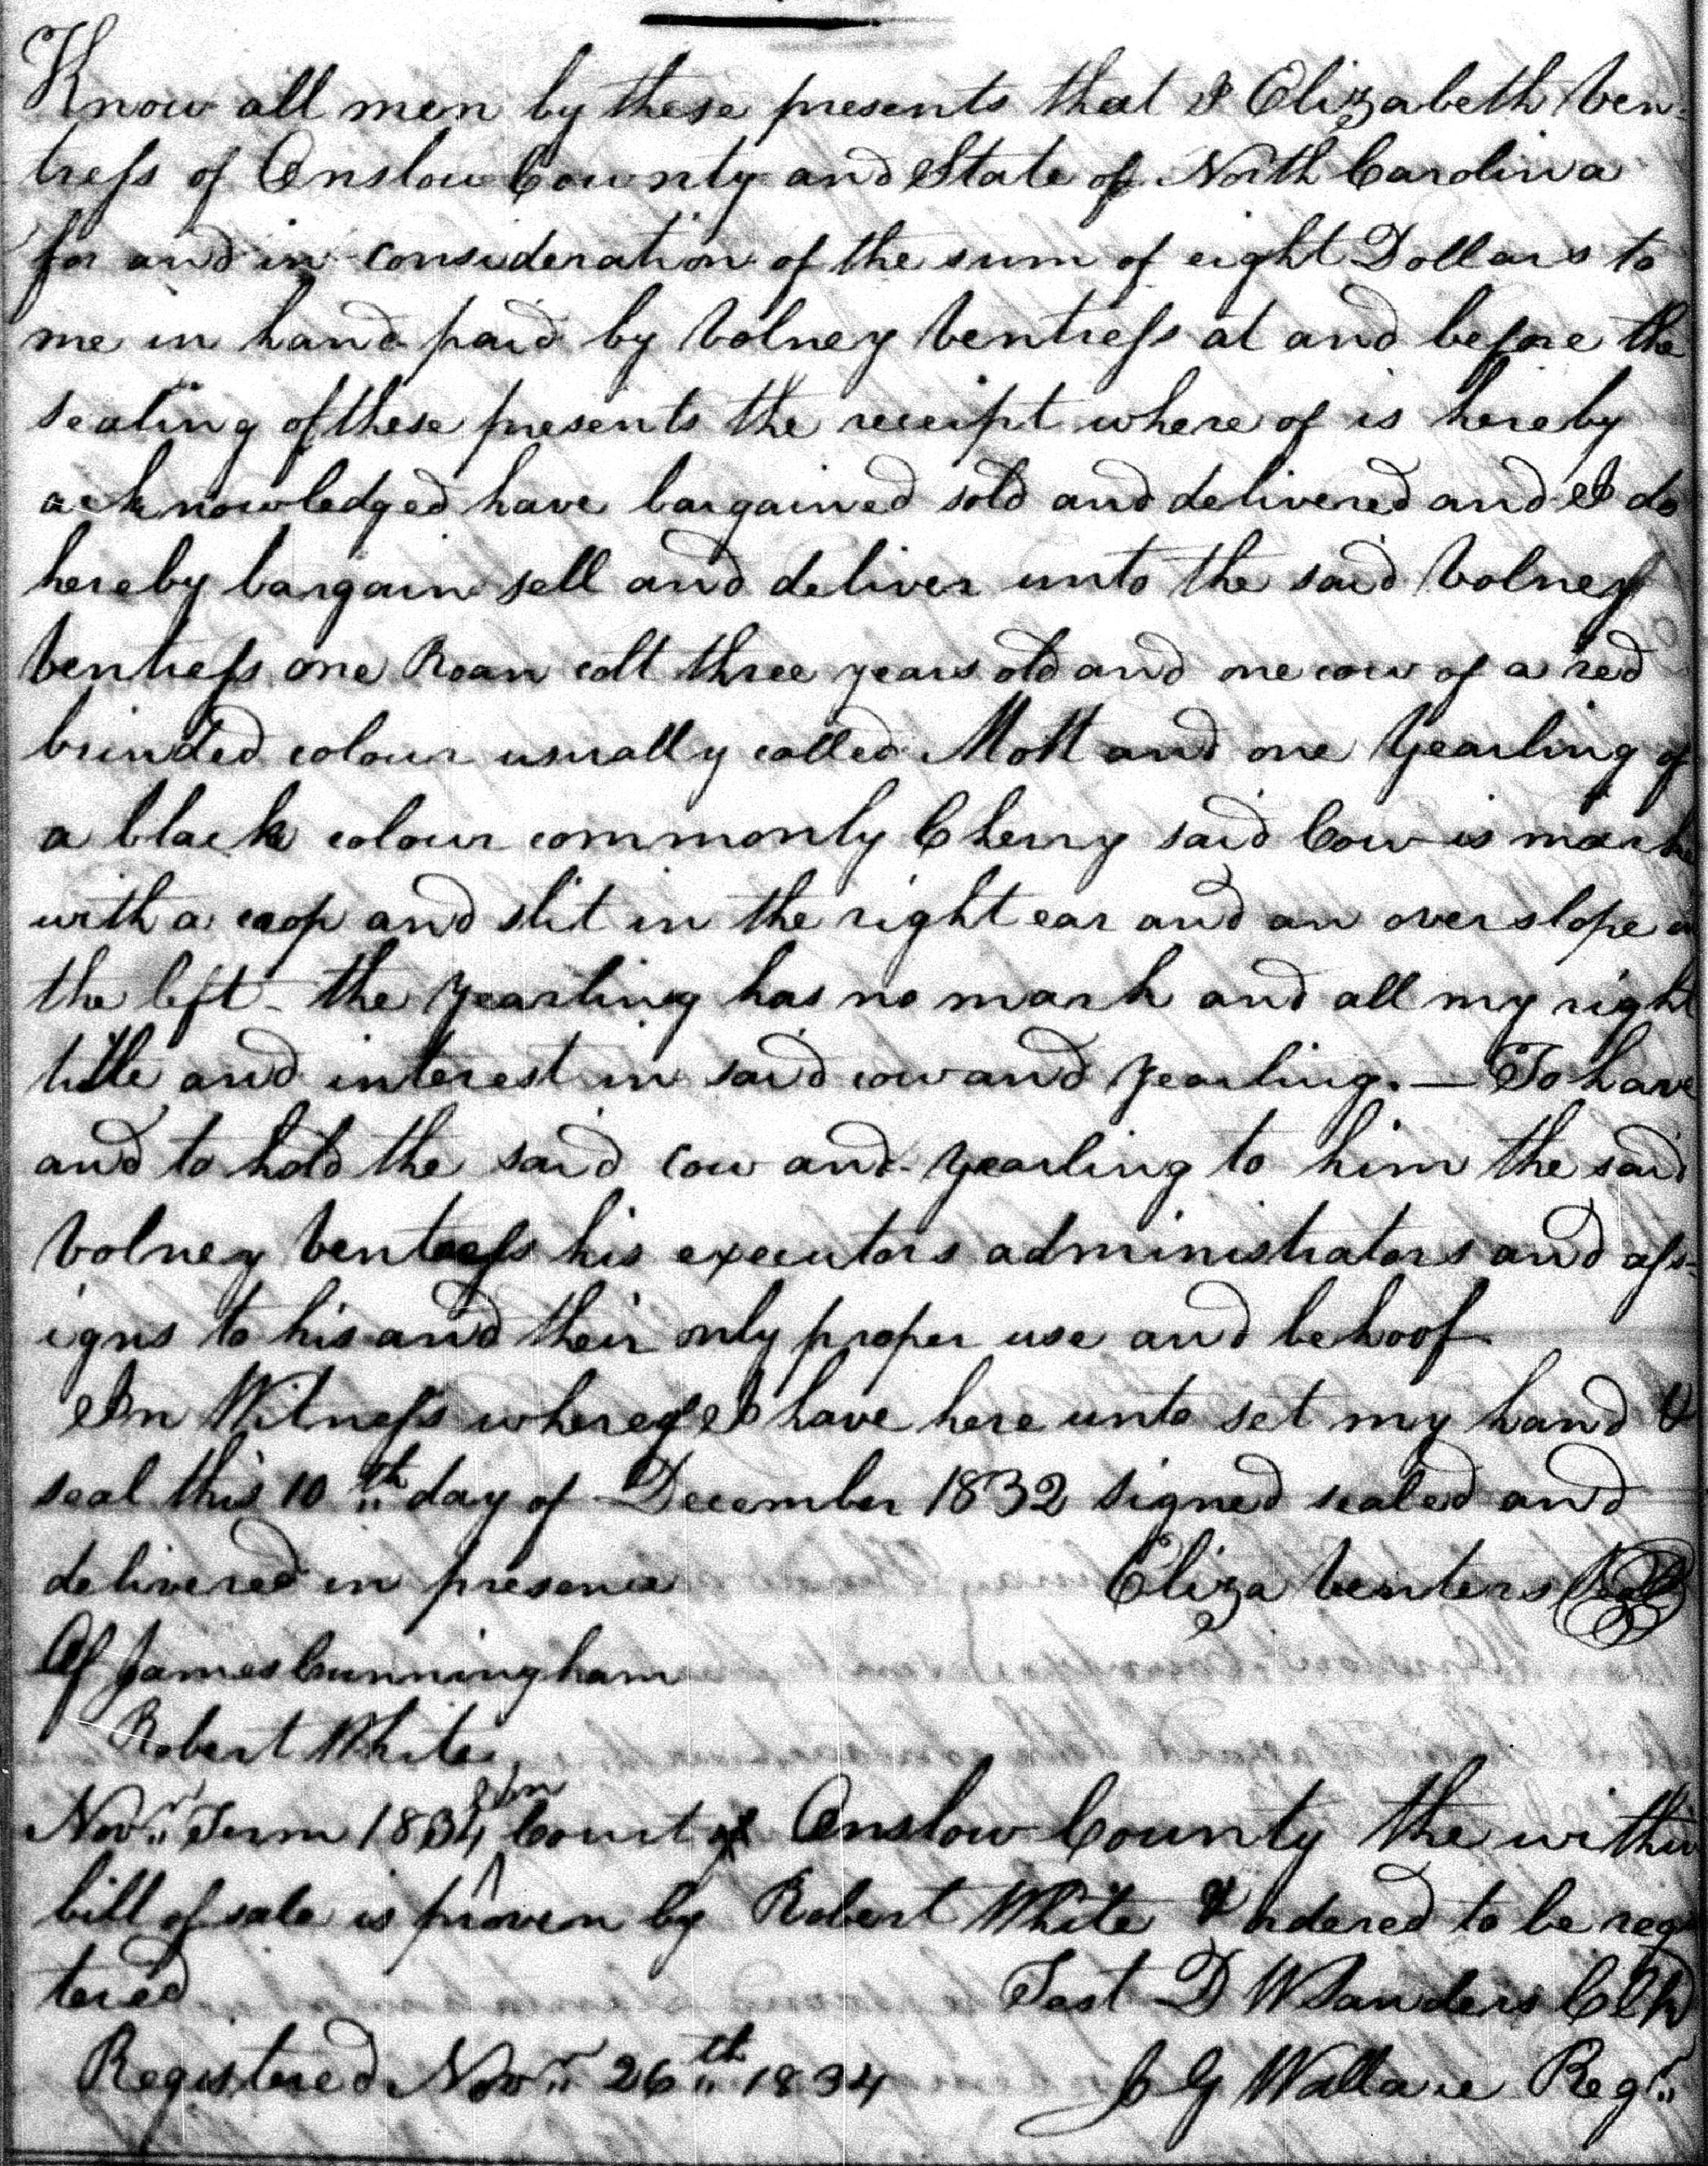 Know all men by these presents that I Elizabeth Ven-
tress of Onslow County and State of North Carolina
for and in consideration of the sum of eight Dollars to
me in hand paid by Volney Ventress at and before the
sealing of these presents the receipt where of is hereby
acknowledged have bargained sold and delivered and I do
hereby bargain sell and deliver unto the said Volney
Ventress one Roan colt three years old and one cow of a red
brinded colour usually called Mott and one Yearling of
a black colour commonly Cherry said Cow is marke
with a crop and slit in the right ear and an over slope
the left - the Yearling has no mark and all my right
title and interest in said cow and Yearling. — To have
and to hold the said cow and Yearling to him the said
Volney Ventress his executors administrators and ass-
igns to his and their only proper use and behoof
In Witness whereof I have here unto set my hand &
seal this 10th day of December 1832 signed sealed and
delivered in presence Eliza Venters Seal
Of James Cunningham
Robert White
Novr. Term 1834 Court of Onslow County the within
bill of sale is proven by Robert White & ordered to be regis
tered Test D W Sanders Clk
Registered Novr. 26th 1834 J G Wallace Regr.